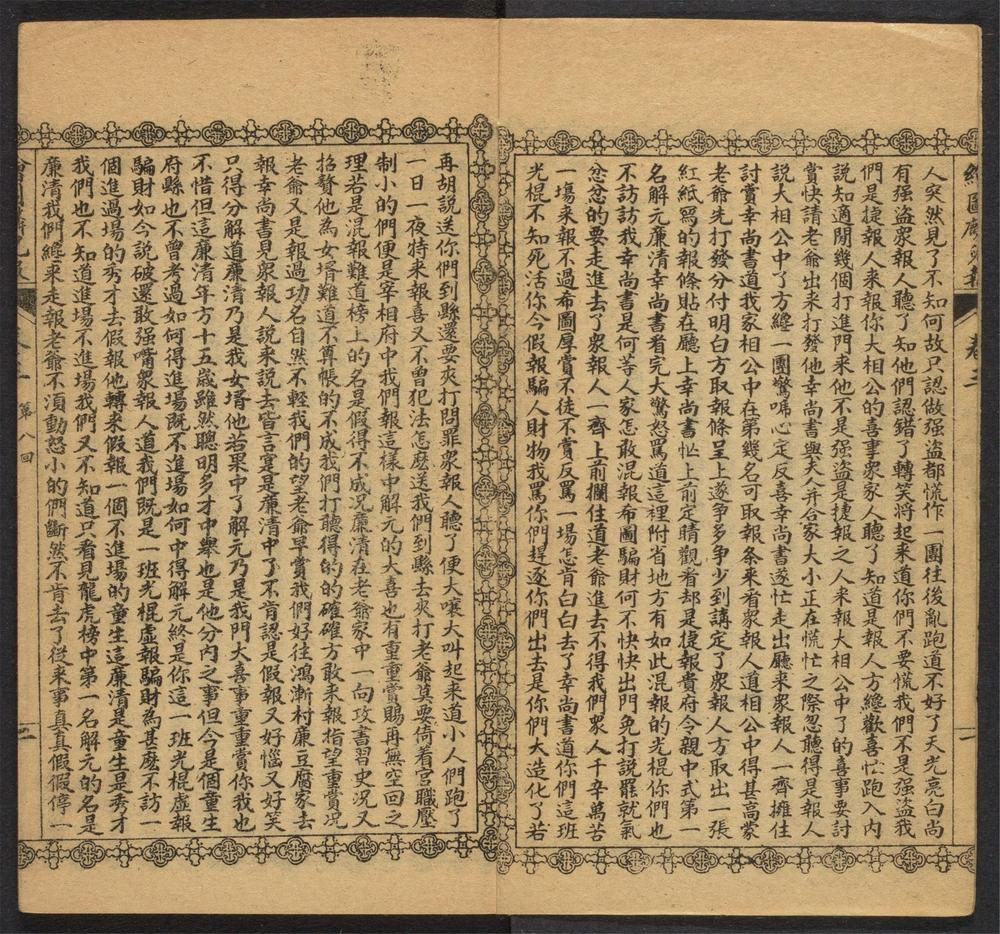 卷三
人突然見了不知何故只認做强盗都慌作一團往後亂跑道不好了天光亮白尚
有强盗衆報人聽了知他們認錯了轉笑將起來道你們不要慌我們不是强盗我
們是捷報人來報你大相公的喜事衆家人聽了知道是報人方纔歡喜忙跑入內
說知適閒幾個打進門來他不是强盗是捷報之人來報大相公中了的喜事要討
賞快請老爺出來打發他幸尚書與夫人并合家大小正在慌忙之際忽聽得是報人
說大相公中了方纔一團驚唬心定反喜幸尚書遂忙走出廳來衆報人一齊擁住
討賞幸尚書道我家相公中在第幾名可取報条來看衆報人道相公中得甚高蒙
老爺先打發分付明白方取報條呈上遂爭多爭少到講定了衆報人方取出一張
紅紙寫的報條貼在廳上幸尚書忙上前定睛觀看却是捷報貴府令親中式第一
名解元廉清幸尚書看完大驚怒罵道這裡附省地方有如此混報的光棍你們也
不訪訪我幸尚書是何等人家怎敢混報布圖騙財何不快快出門免打說罷就氣
忿忿的要走進去了衆報人一齊上前攔住道老爺進去不得我們衆人千辛萬苦
一塲來報不過布圖厚賞不徒不賞反罵一場怎肯白白去了幸尚書道你們這班
光棍不知死活你今假報騙人財物我罵你們趕逐你們出去是你們大造化了若
一
再胡說送你們到縣還要夾打問罪衆報人聽了便大嚷大叫起來道小人們跑了
一日一夜特來報喜又不曾犯法怎麽送我們到縣去夾打老爺莫要倚着宫職壓
制小的們便是宰相府中我們報這樣中解元的大喜也有重重賞賜再無空回之
理若是混報難道榜上的名是假得不成况廉清在老爺家中一向攻書習史况又
招聟他為女壻難道不算帳的不成我們打聽得的的確確方敢来報指望重賞况
老爺又是報過功名自然不輕我們的望老爺早賞我們好往鴻漸村廉豆腐家去
報幸尚書見衆報人說来說去皆言寔是廉清中了不肯認是假報又好惱又好笑
只得分解道廉清乃是我女壻他若果中了解元乃是我門大喜事重重賞你我也
不惜但這廉清年方十五歲雖然聰明多才中舉也是他分內之事但今是個童生
府縣也不曾考過如何得進場既不進場如何中得解元終是你這一班光棍虛報
騙財如今說破還敢强嘴衆報人道我們既是一班光棍虛報騙財為甚麽不訪一
個進過場的秀才去假報他轉来假報一個不進場的童生這廉清是童生是秀才
我們也不知道進場不進場我們又不知道只看見龍虎榜中第一名解元的名是
廉清我們纔来走報老爺不須動怒小的們斷然不肯去了從来事真真假假停一
第八回
二